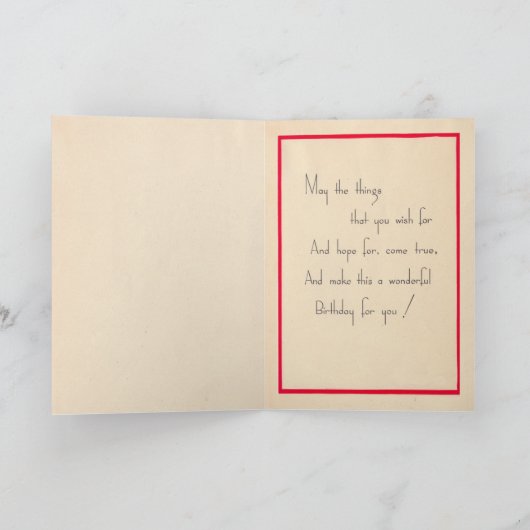 May the things
that you wish for
And hope for, come true,
And make this a wonderful
Birthday for you!